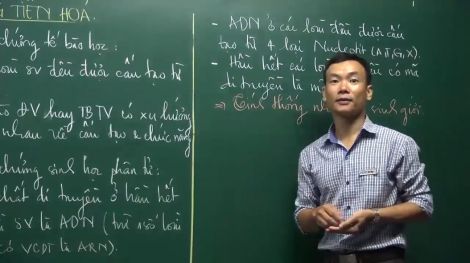 TIẾN HOÁ.
chứng tế bào học:
loài SV đều được cấu tạo từ
ĐV hay TBTV có xu hướng
nhau về cấu tạo & chức năng
chứng sinh học phân tử:
chất di truyền ở hầu hết
SV là ADN (trừ 1 số loài
có VCDT là ARN).
- ADN ở các loài đều được cấu
tạo từ 4 loại Nuclêôtit (A,T,G,X).
- Hầu hết các loài có mã
di truyền là
⇒ Tính thống sinh giới